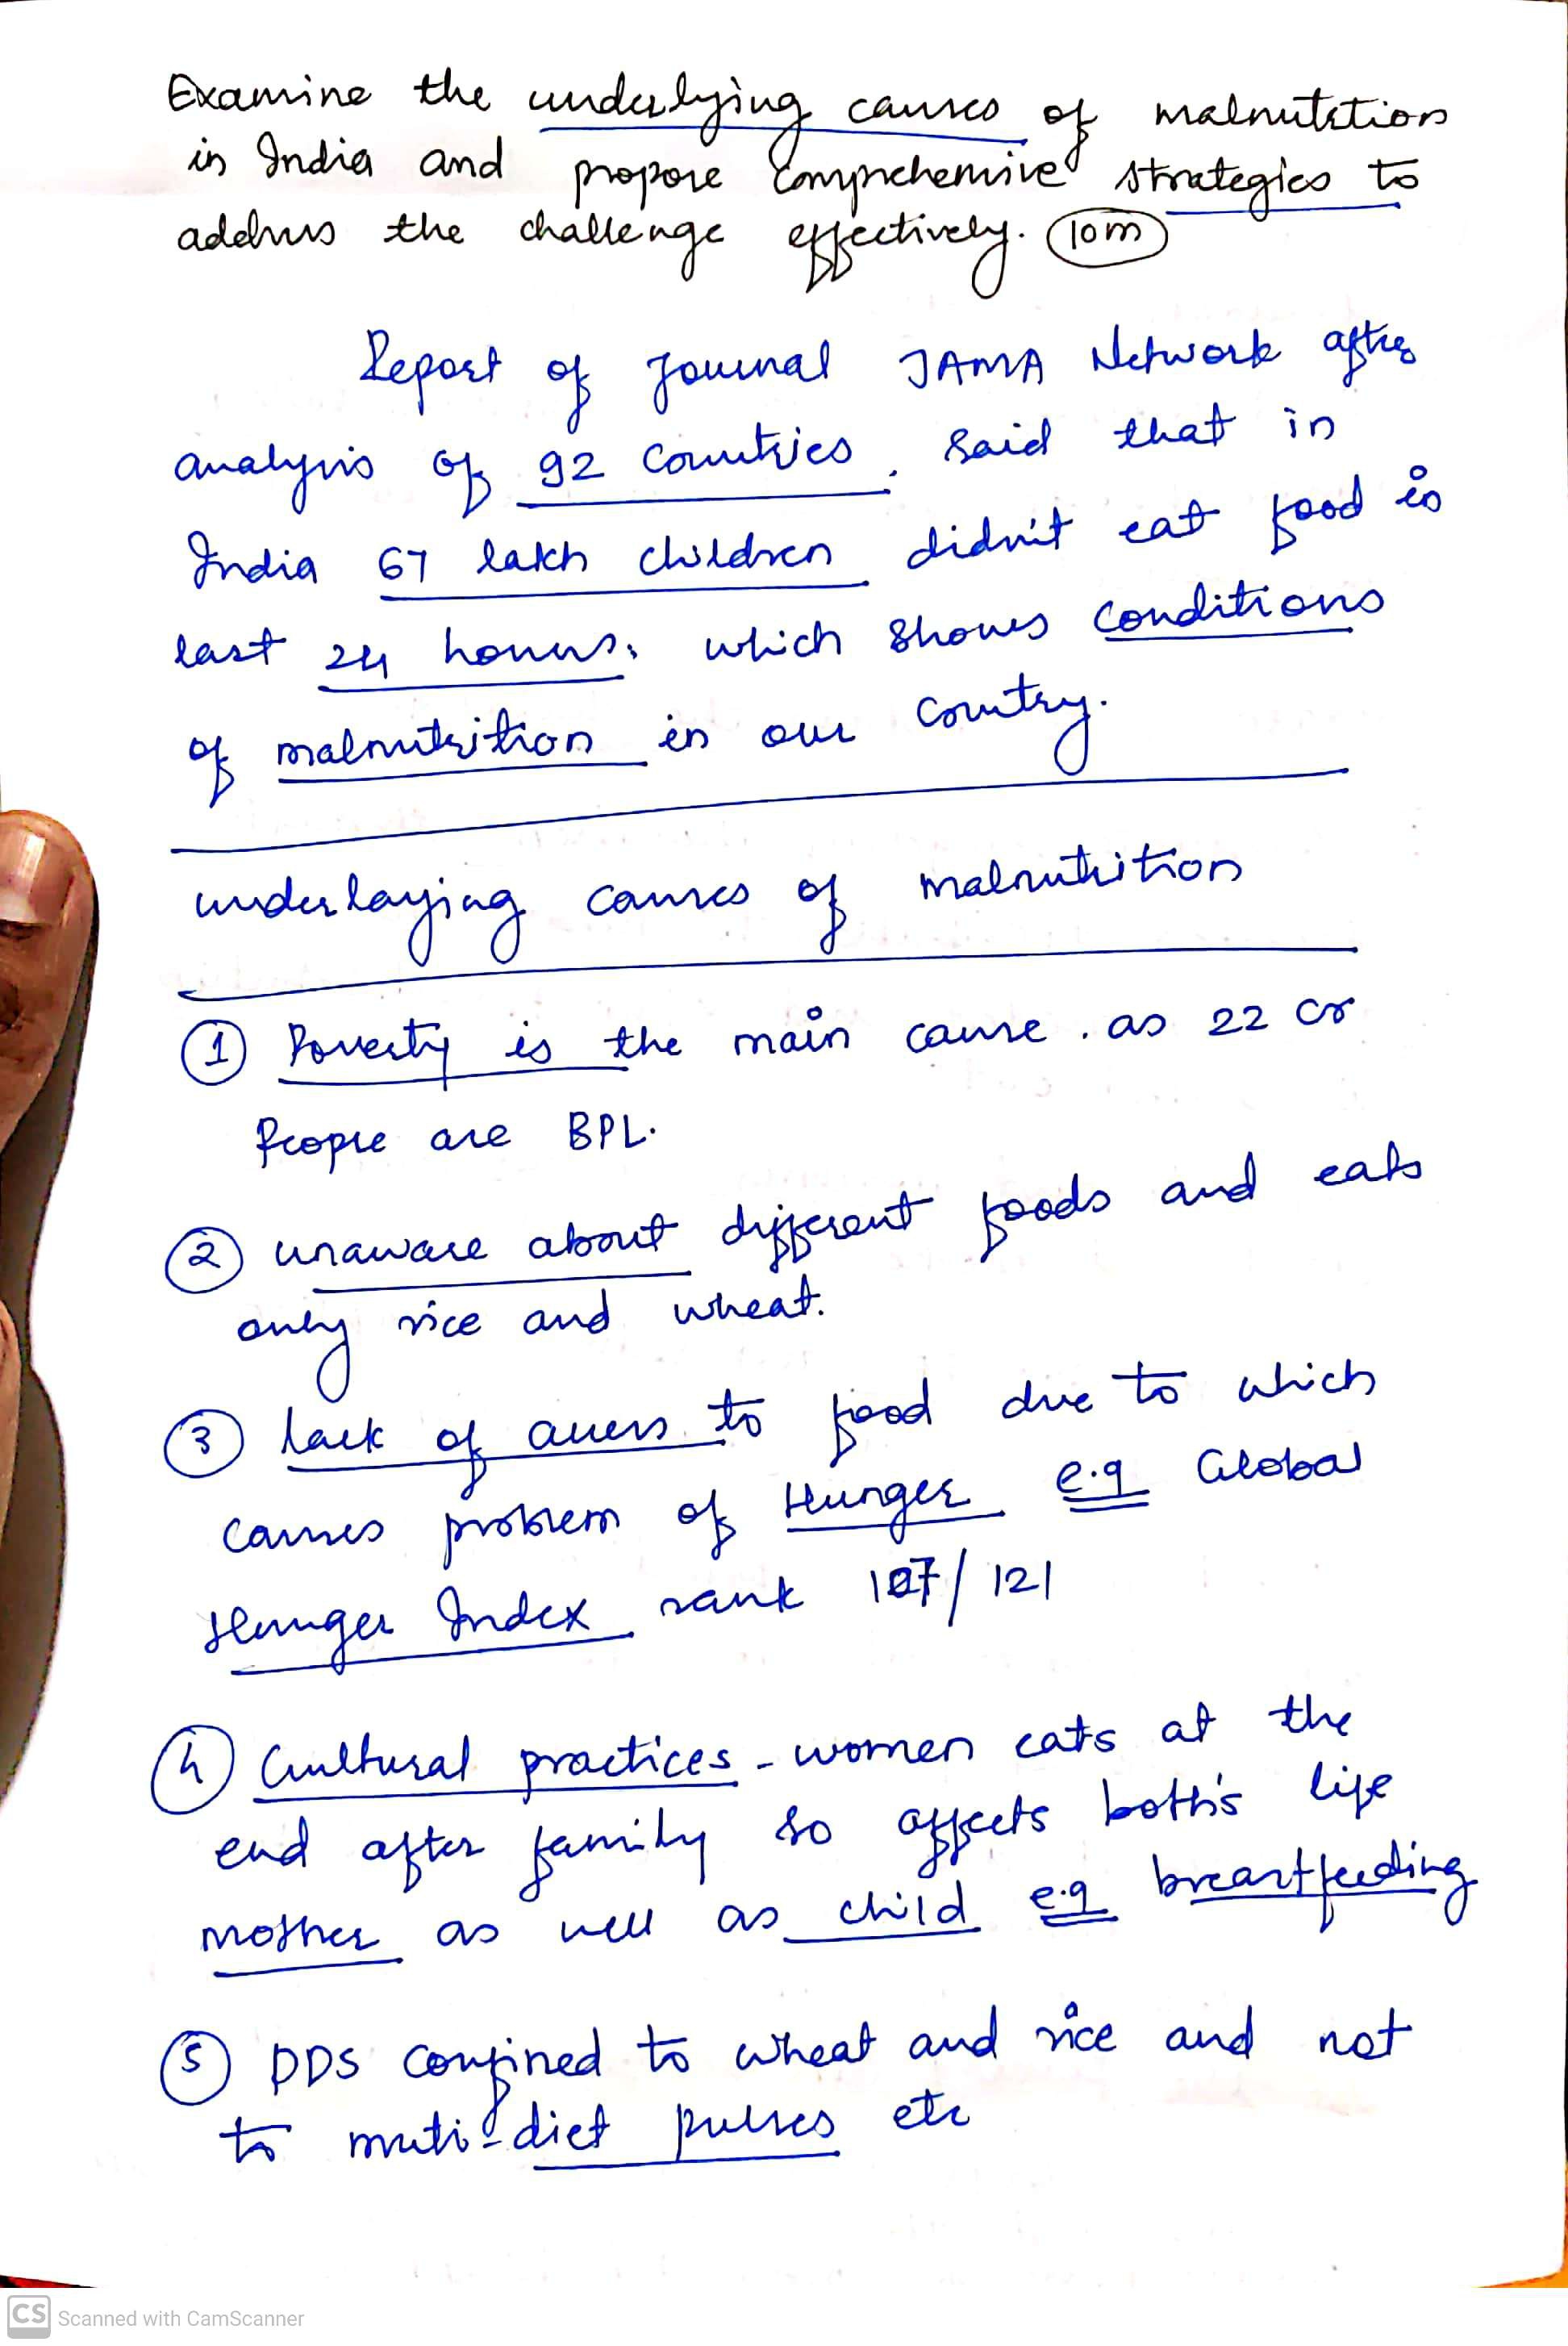 Examine the underlying causes of malnutrition
in India and propose Comprehensive strategies to
address the challenge effectively. 10m
Report of Journal JAMA Network after
analysis of 92 Countries, said that in
India 67 lakh children didn't eat food in
last 24 hours, which shows conditions
of malnutrition in our Country.
underlaying causes of malnutrition
1 Poverty is the main cause. as 22 cr
People are BPL.
2 unaware about different foods and eats
only rice and wheat.
3 lack of access to food due to which
causes problem of Hunger e.g Global
Hunger Index rank 107/121
4 Cultural practices - women eats at the
end after family so affects both's life
mother as well as child e.g breastfeeding
5 PDS confined to wheat and rice and not
to muti-diet pulses etc
CS Scanned with CamScanner